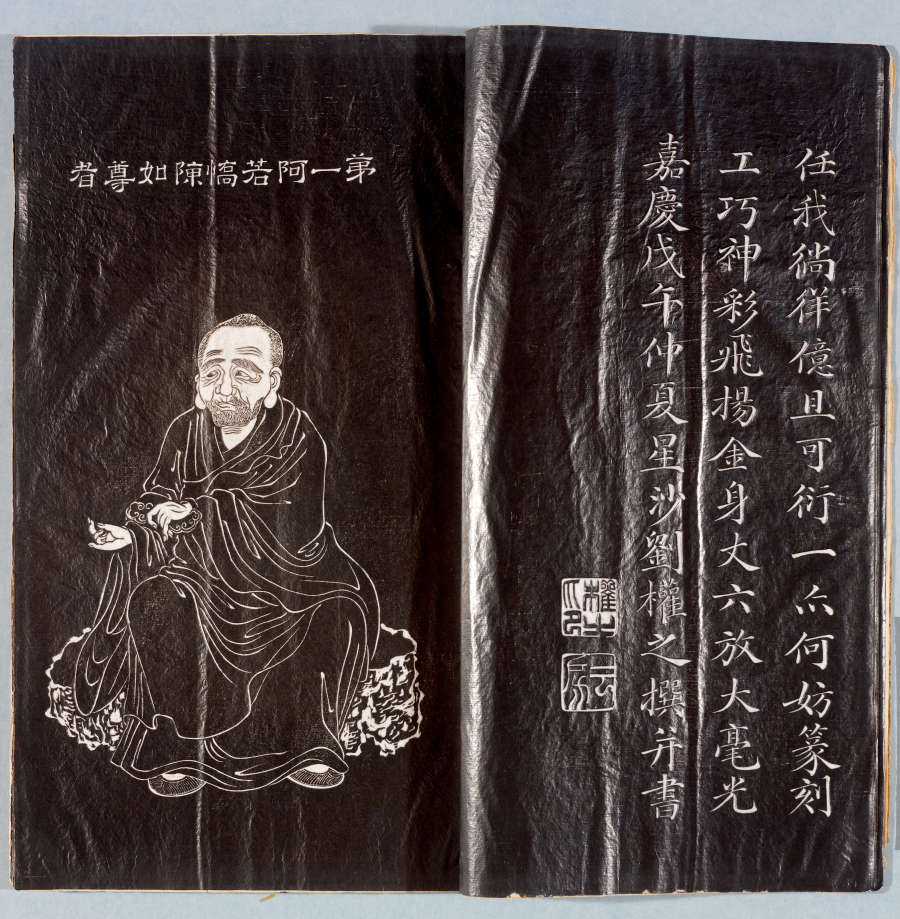 任我徜徉億且可衍一亦何妨篆刻
工巧神彩飛揚金身丈六放大毫光
嘉慶戊午仲夏星沙劉權之撰并書
權之印
苐一阿若憍陳如尊者